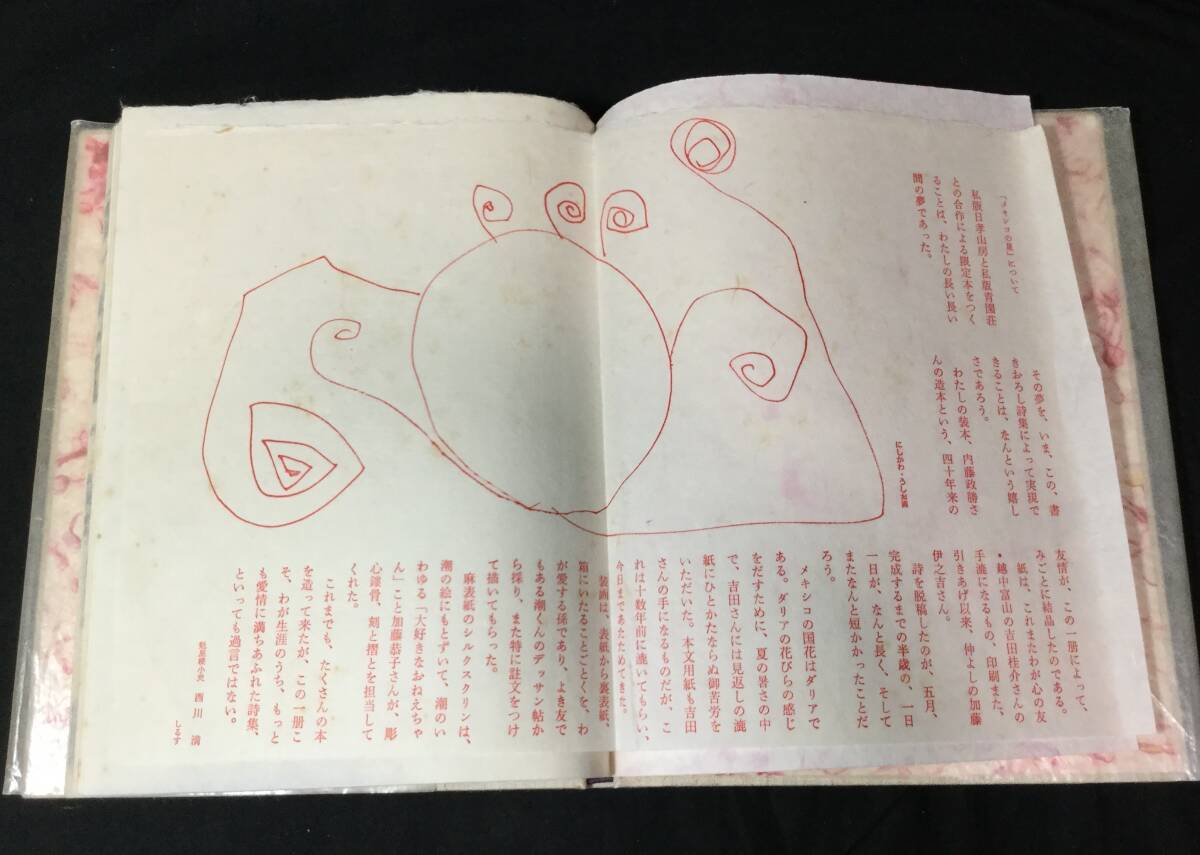 「メキシコの凧」について
私版日孝山房と私版青園荘
との合作による限定本をつく
ることは、わたしの長い長い
間の夢であった。
その夢を、いま、この、書
きおろし詩集によって実現で
きることは、なんという嬉し
さであろう。
わたしの装本、内藤政勝さ
んの造本という、四十年来の
友情が、この一册によって、
みごとに結晶したのである。
紙は、これまたわが心の友
・越中富山の吉田桂介さんの
手漉になるもの、印刷また、
引きあげ以来、仲よしの加藤
伊之吉さん。
詩を脱稿したのが、五月、
完成するまでの半歳の、一日
一日が、なんと長く、そして
またなんと短かかったことだ
ろう。
メキシコの国花はダリアで
ある。ダリアの花びらの感じ
をだすために、夏の暑さの中
で、吉田さんには見返しの漉
紙にひとかたならぬ御苦労を
いただいた。本文用紙も吉田
さんの手になるものだが、こ
れは十数年前に漉いてもらい、
今日まであたためてきた。
装画は、表紙から裏表紙、
箱にいたることごとくを、わ
が愛する孫であり、よき友で
もある潮くんのデッサン帖か
ら採り、また特に註文をつけ
て描いてもらった。
麻表紙のシルクスクリンは、
潮の絵にもとずいて、潮のい
わゆる「大好きなおねえちゃ
ん」こと加藤恭子さんが、彫
心鏤骨、刻と摺とを担当して
くれた。
これまでも、たくさんの本
を造って来たが、この一册こ
そ、わが生涯のうち、もっと
も愛情に満ちあふれた詩集、
といっても過言ではない。
西川 満
しるす
にしかわ・うしお画